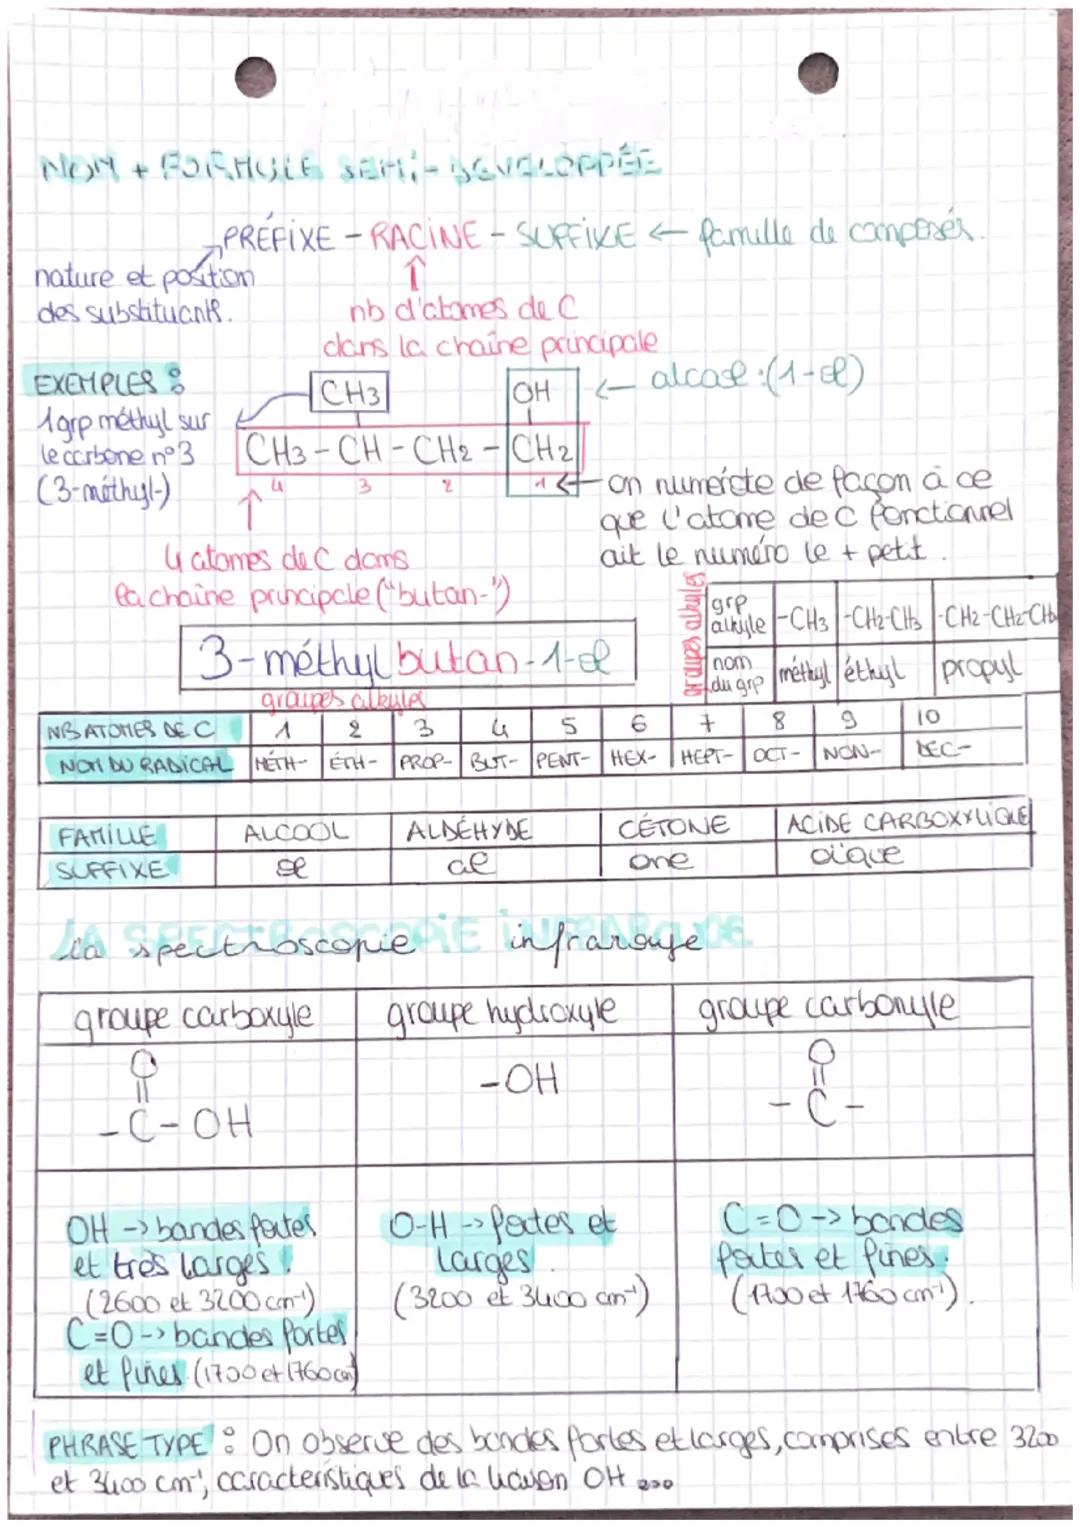 NOM + FORMULE SEMI-DÉVELOPPÉE
PRÉFIXE - RACINE - SUFFIXE ← famille de composés.
nature et position
des substituants.
↑
nb d'atomes de C
dans la chaîne principale
EXEMPLES :
1 grp méthyl sur
le carbone n°3
(3-méthyl-)
CH3
OH
← alcool : (1-ol)
CH3 - CH - CH2 - CH2
4 3 2 1
← on numérote de façon à ce
que l'atome de C fonctionnel
ait le numéro le + petit.
4 atomes de C dans
la chaîne principale ("butan-")
3-méthylbutan-1-ol
groupes alkyles
groupes alkyles
grp alkyle -CH3 -CH2-CH3 -CH2-CH2-CH3
nom du grp méthyl éthyl propyl
NB ATOMES DE C 1 2 3 4 5 6 7 8 9 10
NOM DU RADICAL MÉTH- ÉTH- PROP- BUT- PENT- HEX- HEPT- OCT- NON- DEC-
FAMILLE ALCOOL ALDÉHYDE CÉTONE ACIDE CARBOXYLIQUE
SUFFIXE ol al one oïque
La spectroscopie infrarouge
groupe carboxyle groupe hydroxyle groupe carbonyle
O
-C-OH
-OH
O
-C-
OH -> bandes fortes
et très larges.
(2600 et 3200 cm⁻¹)
C=O -> bandes fortes
et fines. (1700 et 1760 cm
O-H -> fortes et
larges.
(3200 et 3400 cm⁻¹)
C=O -> bandes
fortes et fines.
(1700 et 1760 cm⁻¹).
PHRASE TYPE : On observe des bandes fortes et larges, comprises entre 3200
et 3400 cm⁻¹, caractéristiques de la liaison OH ...